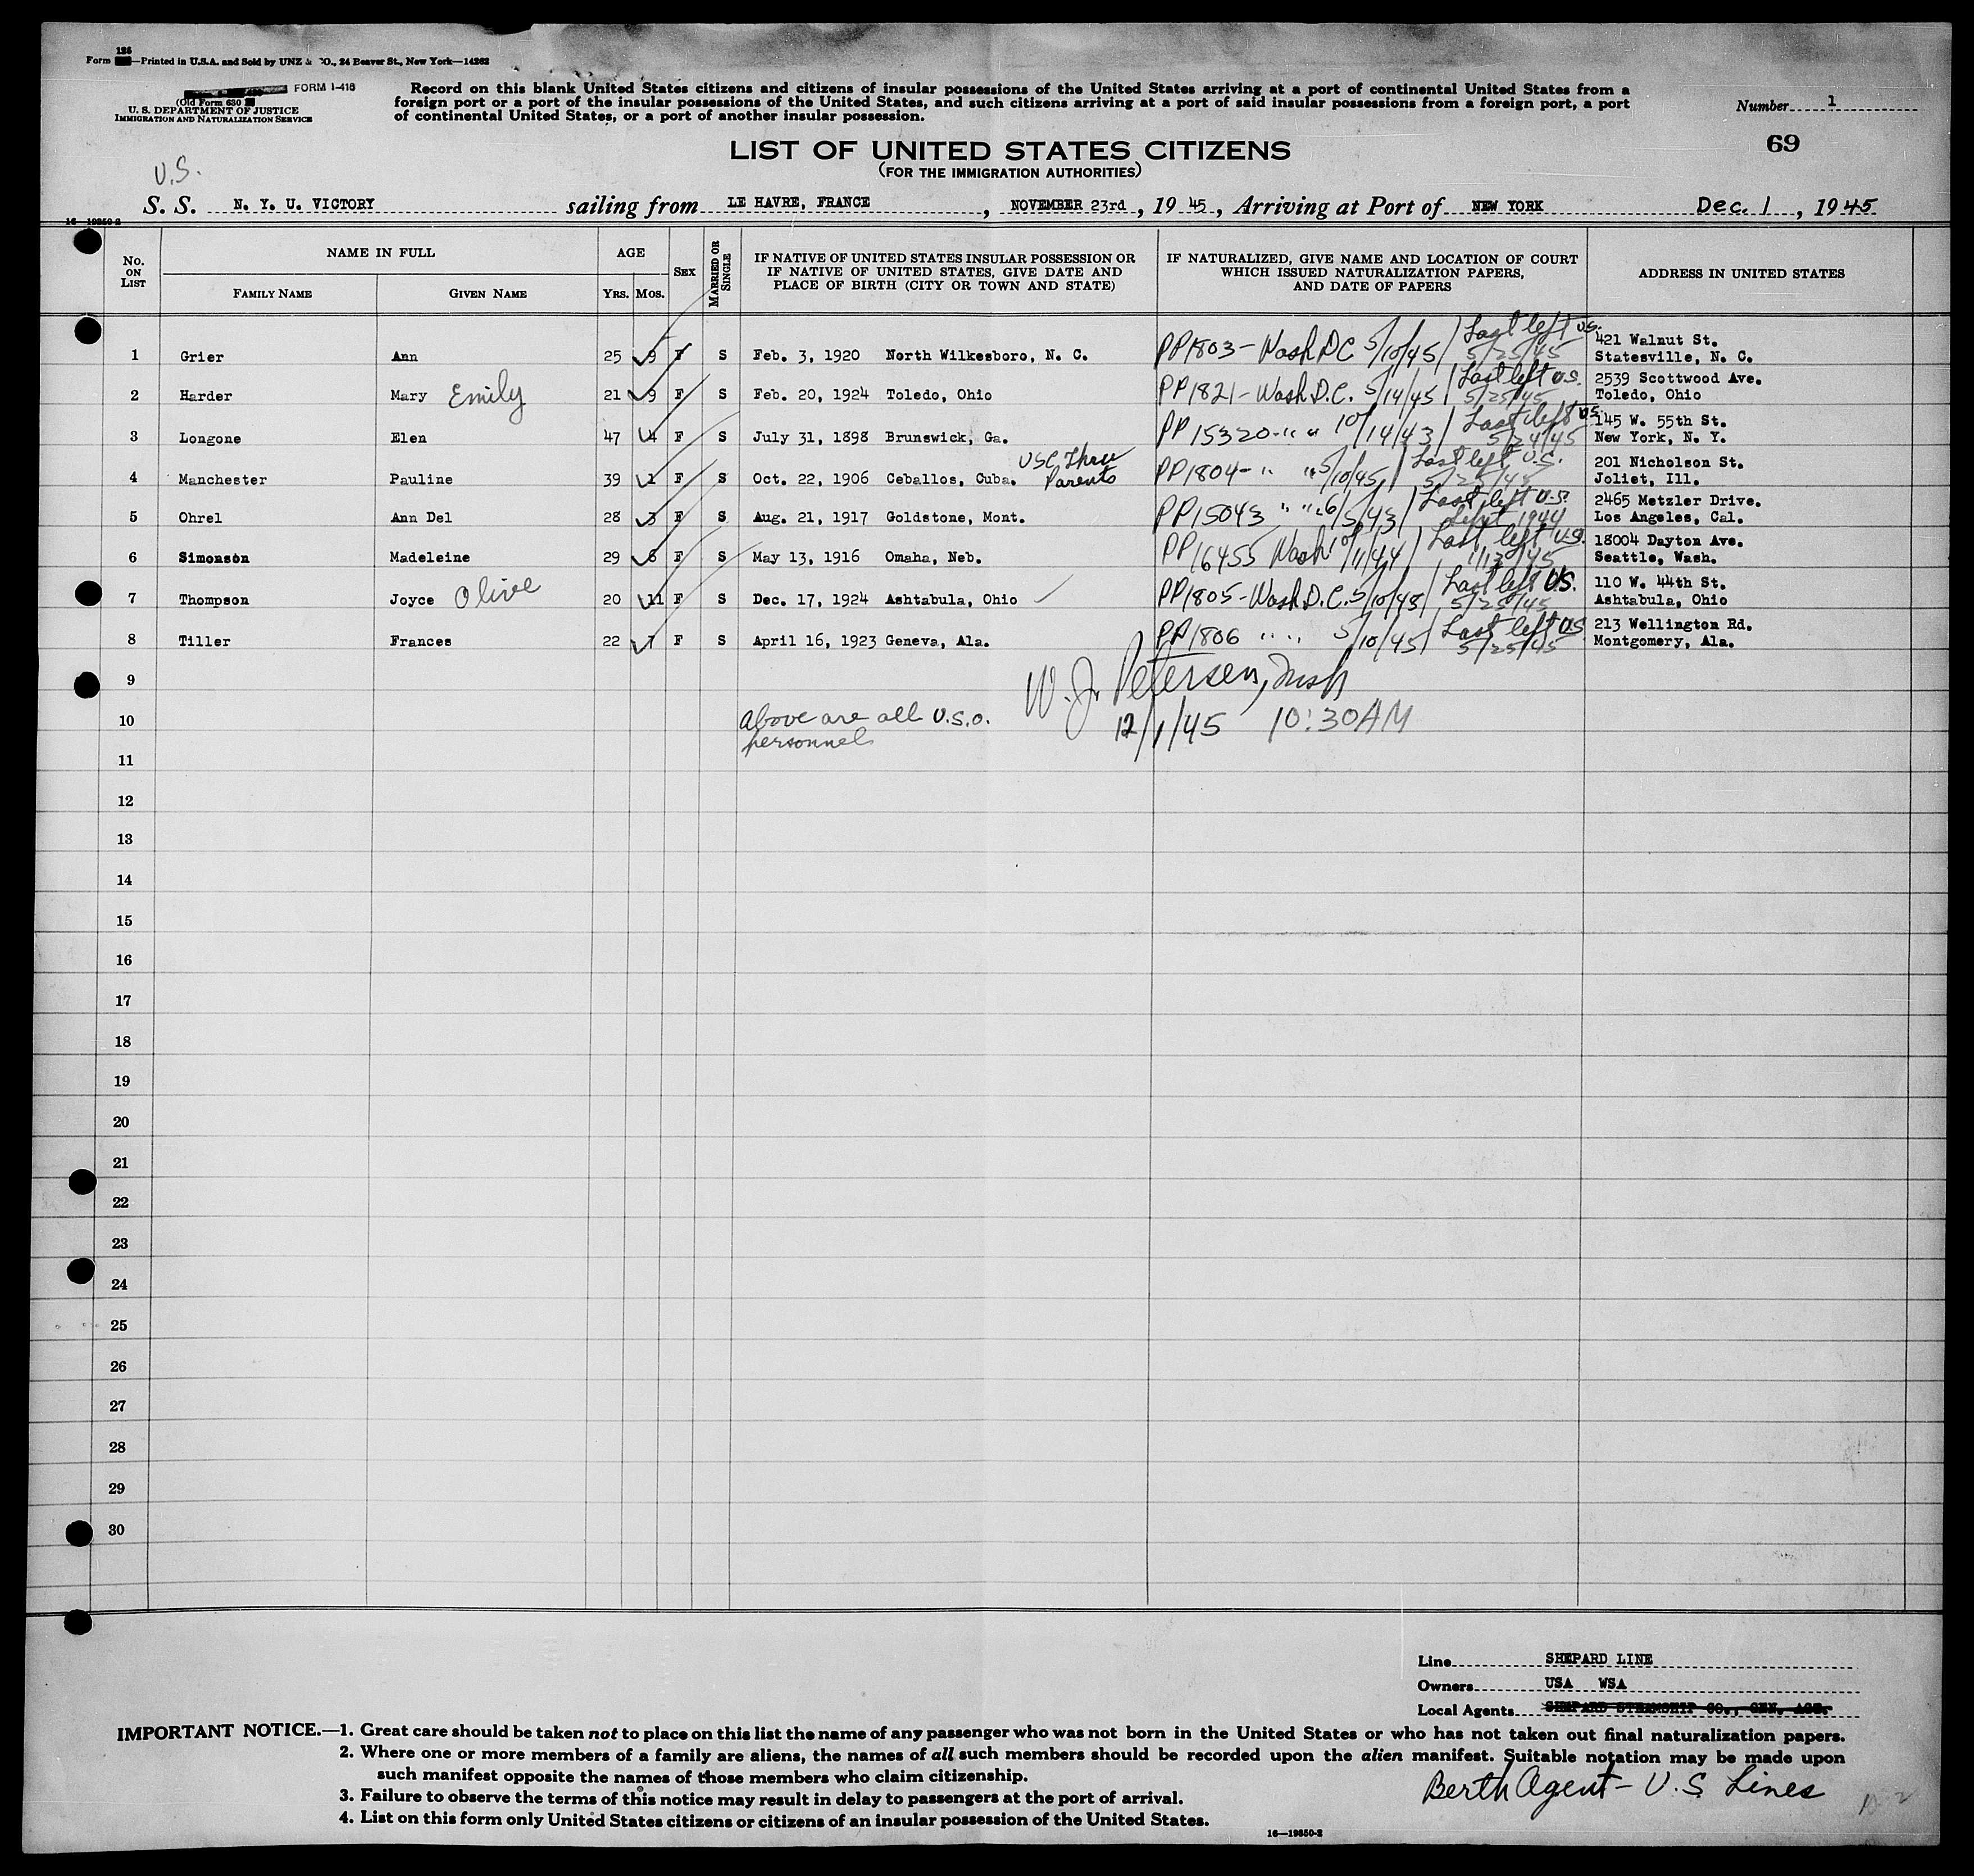 125
Form —Printed in U.S.A. and Sold by UNZ & CO., 24 Beaver St., New York—14262
FORM I-418
(Old Form 630
U. S. DEPARTMENT OF JUSTICE
IMMIGRATION AND NATURALIZATION SERVICE
Record on this blank United States citizens and citizens of insular possessions of the United States arriving at a port of continental United States from a
foreign port or a port of the insular possessions of the United States, and such citizens arriving at a port of said insular possessions from a foreign port, a port
of continental United States, or a port of another insular possession.
Number 1
69
LIST OF UNITED STATES CITIZENS
(FOR THE IMMIGRATION AUTHORITIES)
U.S.
S. S. N. Y. U. VICTORY sailing from LE HAVRE, FRANCE, NOVEMBER 23rd, 19 45, Arriving at Port of NEW YORK Dec. 1, 1945
16—19850-2
No. ON LIST NAME IN FULL AGE SEX MARRIED OR SINGLE IF NATIVE OF UNITED STATES INSULAR POSSESSION OR IF NATIVE OF UNITED STATES, GIVE DATE AND PLACE OF BIRTH (CITY OR TOWN AND STATE) IF NATURALIZED, GIVE NAME AND LOCATION OF COURT WHICH ISSUED NATURALIZATION PAPERS, AND DATE OF PAPERS ADDRESS IN UNITED STATES
FAMILY NAME GIVEN NAME YRS. MOS.
1 Grier Ann 25 9 F S Feb. 3, 1920 North Wilkesboro, N. C. PP1803- Wash DC 5/10/45 / Last left U.S. 5/25/45 421 Walnut St. Statesville, N. C.
2 Harder Mary Emily 21 9 F S Feb. 20, 1924 Toledo, Ohio PP1821- Wash D.C. 5/14/45 / Last left U.S. 5/25/45 2539 Scottwood Ave. Toledo, Ohio
3 Longone Elen 47 4 F S July 31, 1898 Brunswick, Ga. PP 15320- " " 10/14/43 / Last left U.S. 5/24/45 145 W. 55th St. New York, N. Y.
4 Manchester Pauline 39 1 F S Oct. 22, 1906 Ceballos, Cuba. USC Thru Parents PP1804- " " 5/10/45 / Last left U.S. 5/25/45 201 Nicholson St. Joliet, Ill.
5 Ohrel Ann Del 28 3 F S Aug. 21, 1917 Goldstone, Mont. PP15043 " " 6/5/43 / Last left U.S. Sept 1944 2465 Metzler Drive. Los Angeles, Cal.
6 Simonson Madeleine 29 6 F S May 13, 1916 Omaha, Neb. PP16455 Wash 10/11/44 / Last left U.S. 1/13/45 18004 Dayton Ave. Seattle, Wash.
7 Thompson Joyce Olive 20 11 F S Dec. 17, 1924 Ashtabula, Ohio PP1805- Wash D.C. 5/10/45 / Last left U.S. 5/25/45 110 W. 44th St. Ashtabula, Ohio
8 Tiller Frances 22 7 F S April 16, 1923 Geneva, Ala. PP1806 " " 5/10/45 / Last left U.S. 5/25/45 213 Wellington Rd. Montgomery, Ala.
9
W. J. Petersen,
10 above are all U.S.O. personnel 12/1/45 10:30AM
11
12
13
14
15
16
17
18
19
20
21
22
23
24
25
26
27
28
29
30
Line SHEPARD LINE
Owners USA WSA
Local Agents SHEPARD STEAMSHIP CO., GEN. AGT.
IMPORTANT NOTICE.—1. Great care should be taken not to place on this list the name of any passenger who was not born in the United States or who has not taken out final naturalization papers.
2. Where one or more members of a family are aliens, the names of all such members should be recorded upon the alien manifest. Suitable notation may be made upon
such manifest opposite the names of those members who claim citizenship.
3. Failure to observe the terms of this notice may result in delay to passengers at the port of arrival.
4. List on this form only United States citizens or citizens of an insular possession of the United States.
Berth Agent - U.S. Lines
16—19850-2